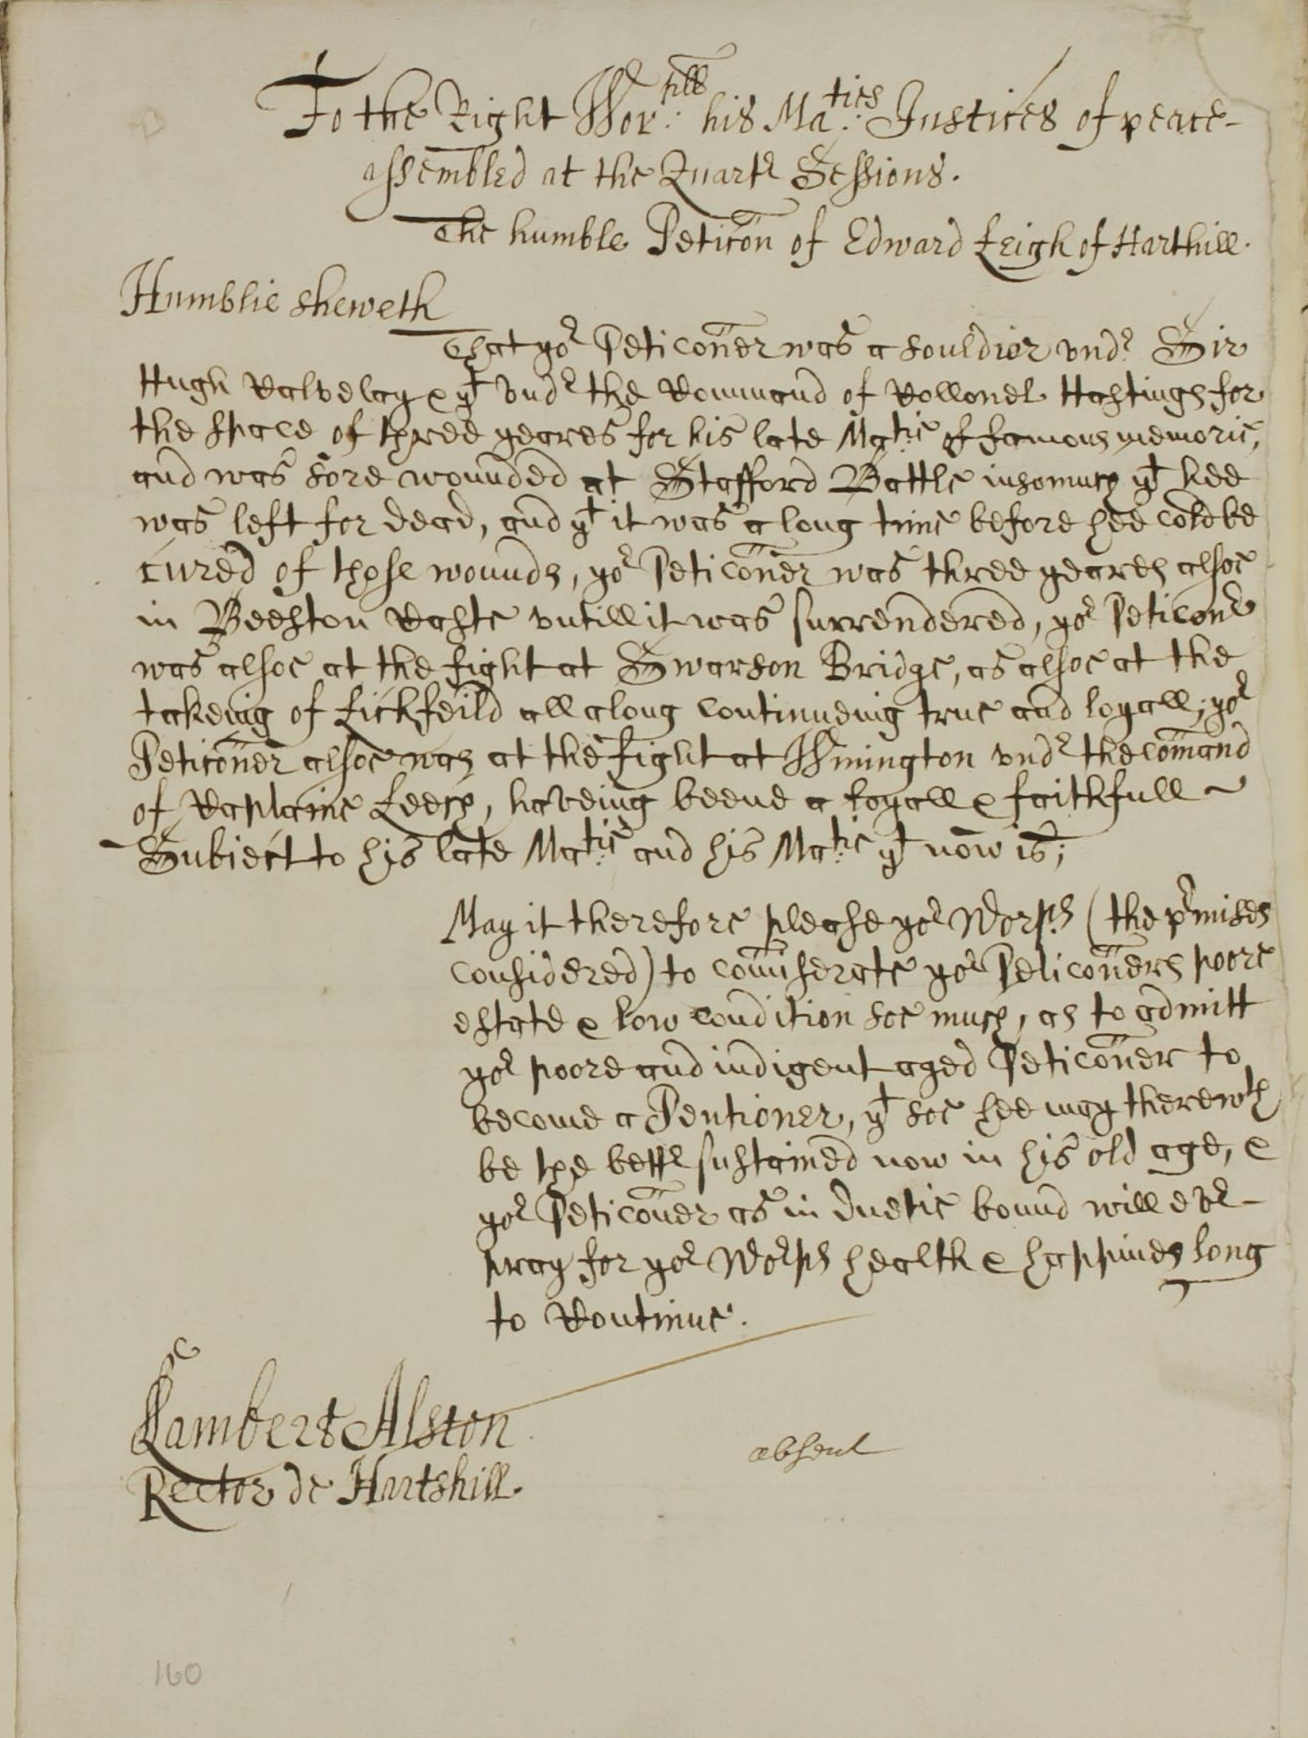 To the Right Wor:full his Ma:ties Justices of peace-
assembled at the Quartr Sessions.
The humble Peticon of Edward Leigh of Harthill.
Humblie sheweth
That yor Peticoner was a souldier vndr Sir
Hugh Calveley & yt vndr the Command of Collonel Hastings for
the space of three yeares for his late Ma:tie of famous memorie,
and was sore wounded at Stafford Battle insomuch yt hee
was left for dead, and yt it was a long time before hee cold be
cured of those wounds, yor Peticoner was three yeares alsoe
in Beeston Caste vntill it was surrendered, yor Peticonr
was alsoe at the fight at Swarson Bridge, as alsoe at the
takeing of Lickfeild all along continueing true and loyall; yor
Peticoner alsoe was at the fight at Winington vndr the comand
of Captaine Leech, haveing beene a loyall & faithfull ~
Subiect to his late Ma:tie and his Ma:tie yt now is;
May it therefore please yor Worps (the prmises
considered) to comiserate yor Peticoners poore
estate & low condition soe much, as to admitt
yor poore and indigent aged Peticoner to
become a Pentioner, yt soe hee may therewth
be the bettr sustained now in his old age, &
yor Peticoner as in duetie bound will evr-
pray for yor Worps health & happines long
to Continue.
Lambert Alston
Rector de Hartshill.
absent
160